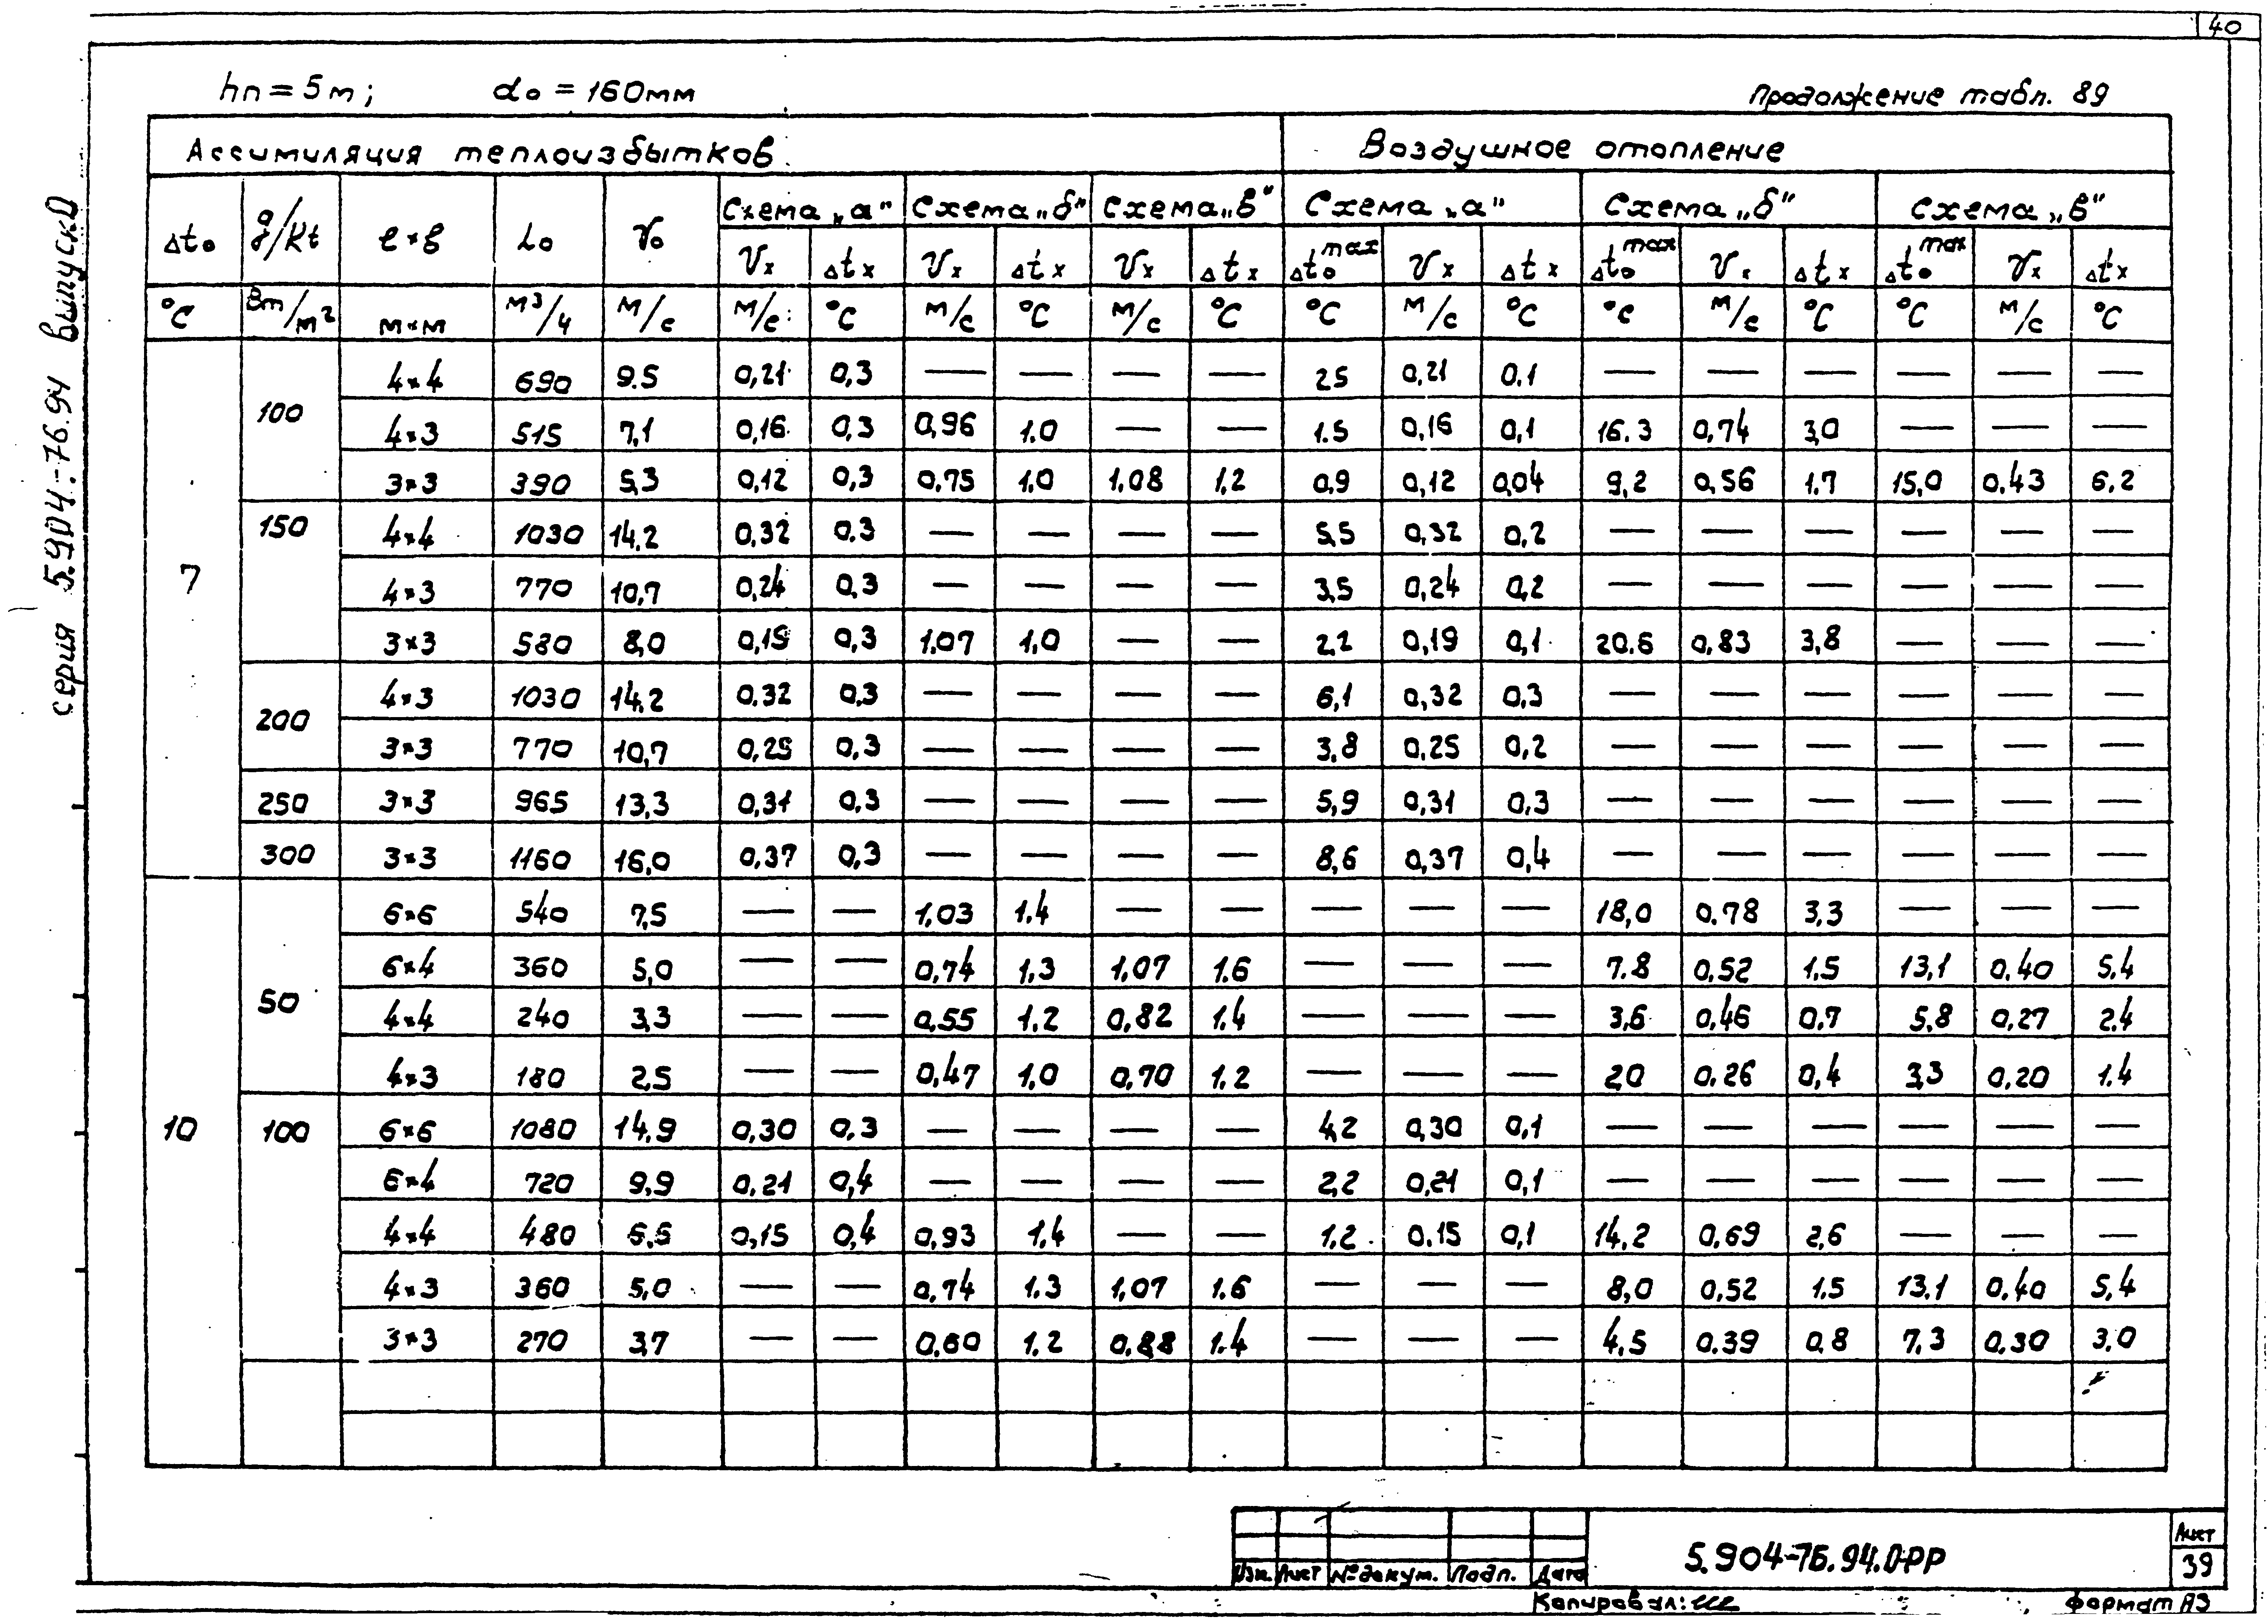 40
hп = 5м; do = 160мм
Продолжение табл. 89
серия 5.904-76.94 выпуск 0
Ассимиляция теплоизбытков Воздушное отопление
Δto q/Kt l×b Lo Vo Схема „а" Схема „б" Схема „в" Схема „а" Схема „б" Схема „в"
Vx Δtx Vx Δtx Vx Δtx Δto max Vx Δtx Δto max Vx Δtx Δto max Vx Δtx
°C Вт/м² м×м м³/ч м/с м/с °C м/с °C м/с °C °C м/с °C °C м/с °C °C м/с °C
7 100 4×4 690 9.5 0,21 0,3 — — — — 2,5 0,21 0.1 — — — — — —
4×3 515 7,1 0,16 0,3 0,96 1.0 — — 1.5 0,16 0,1 16.3 0,74 3,0 — — —
3×3 390 5,3 0,12 0,3 0,75 1,0 1,08 1,2 0,9 0,12 0,04 9,2 0,56 1.7 15,0 0,43 6,2
150 4×4 1030 14,2 0,32 0.3 — — — — 5,5 0,32 0,2 — — — — — —
4×3 770 10,7 0,24 0,3 — — — — 3,5 0,24 0,2 — — — — — —
3×3 580 8,0 0,19 0,3 1,07 1,0 — — 2,2 0,19 0,1 20.6 0,83 3,8 — — —
200 4×3 1030 14,2 0,32 0,3 — — — — 6,1 0,32 0,3 — — — — — —
3×3 770 10,7 0,25 0,3 — — — — 3,8 0,25 0,2 — — — — — —
250 3×3 965 13,3 0,31 0,3 — — — — 5,9 0,31 0,3 — — — — — —
300 3×3 1160 16,0 0,37 0,3 — — — — 8,6 0,37 0,4 — — — — — —
10 50 6×6 540 7,5 — — 1,03 1.4 — — — — — 18,0 0.78 3,3 — — —
6×4 360 5,0 — — 0,74 1,3 1,07 1.6 — — — 7.8 0,52 1,5 13,1 0,40 5,4
4×4 240 3,3 — — 0,55 1.2 0,82 1.4 — — — 3,6 0,46 0,7 5,8 0,27 2,4
4×3 180 2,5 — — 0,47 1,0 0,70 1.2 — — — 2,0 0.26 0,4 3,3 0,20 1.4
100 6×6 1080 14,9 0,30 0,3 — — — — 4,2 0,30 0,1 — — — — — —
6×4 720 9,9 0,21 0,4 — — — — 2,2 0,21 0,1 — — — — — —
4×4 480 6,6 0,15 0,4 0,93 1,4 — — 1.2 0.15 0,1 14,2 0,69 2,6 — — —
4×3 360 5,0 — — 0,74 1.3 1,07 1.6 — — — 8,0 0,52 1.5 13.1 0,40 5,4
3×3 270 3,7 — — 0,60 1.2 0,88 1.4 — — — 4,5 0.39 0,8 7,3 0,30 3,0
Изм. Лист № докум. Подп. Дата
5.904-76.94.0-РР
Лист
39
Копировал:
Формат А3